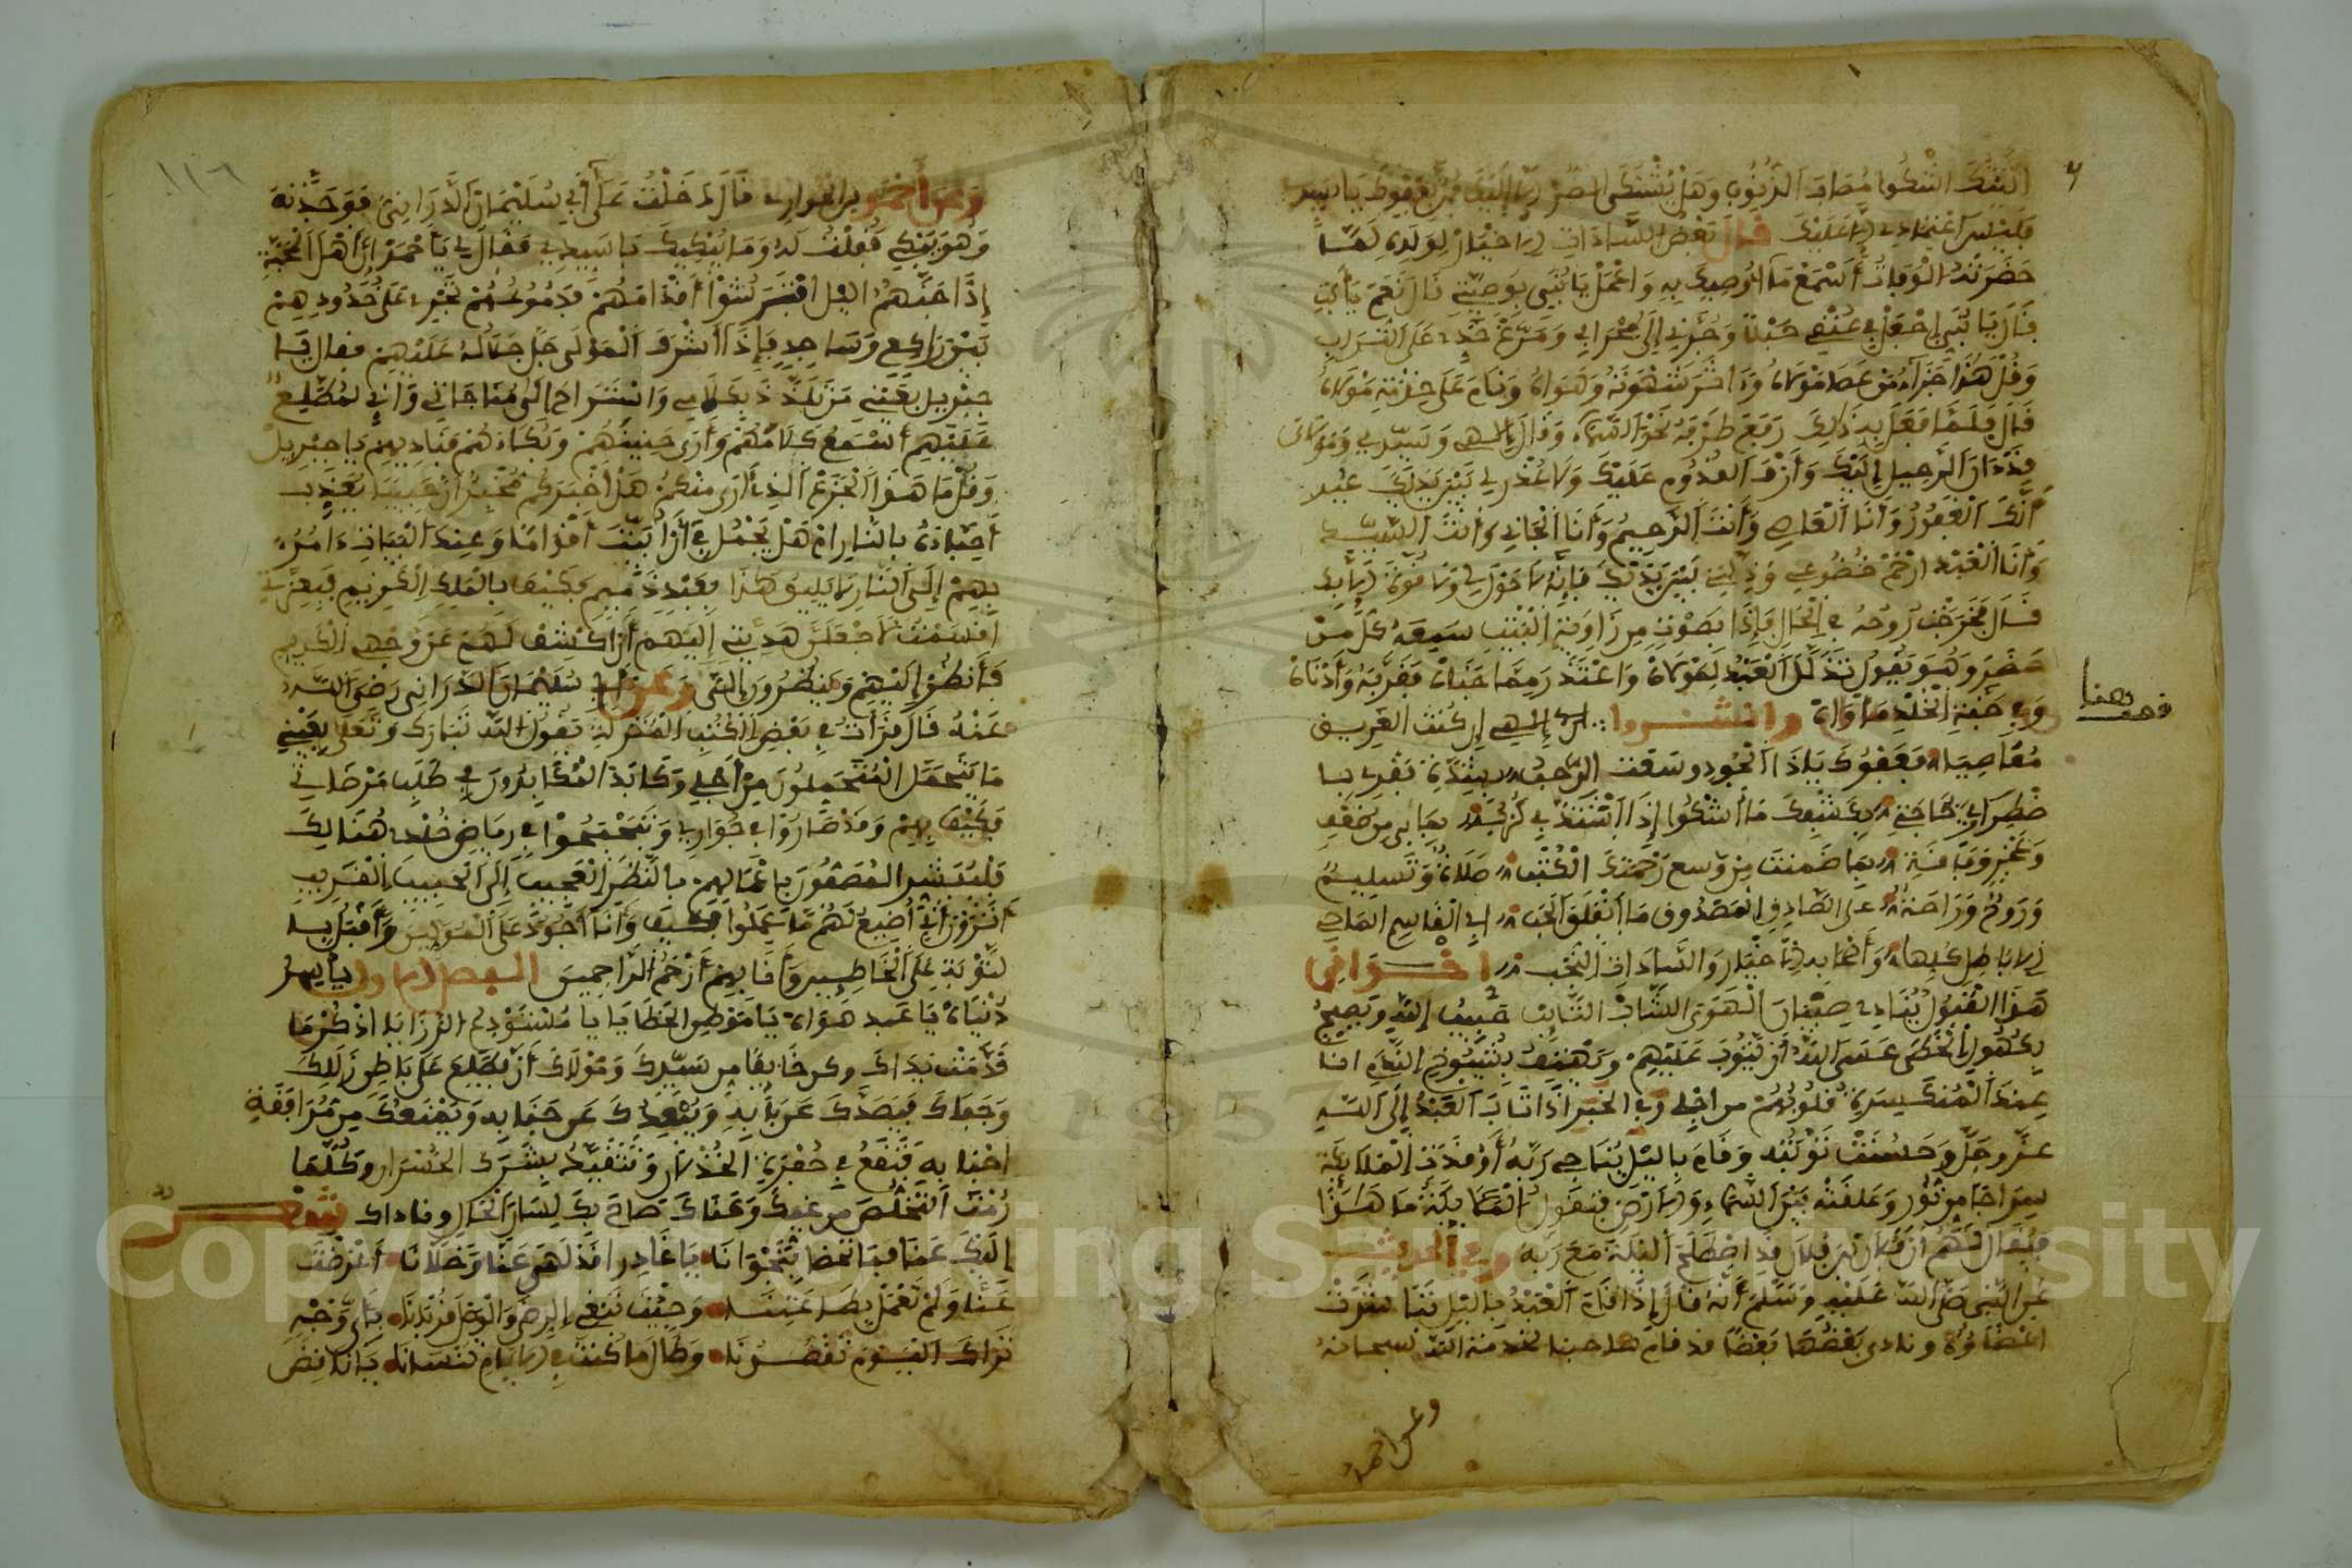 إليك الشكوا مصاب الذنوب وهل يشتكى الضر إلا إليك فمن بعفوك يا سيدي
فليس اعتمادي إلا عليك قال بعض السادات الأخيار لولده لما
حضرته الوفاة أسمع ما أوصيك به واعمل يا بني بوصيتي قال نعم يا أبت
قال يا بني اجعل في عنقي حبلا وجرني إلى محرابي ومرغ خدي على التراب
وقل هذا جزاء من عصا مولاه وءاثر شهوته وهواه ونام على خدمة مولاه
قال فلما فعل به ذلك رفع طرفه نحو السماء وقال إلاهي وسيدي ومولاي
قد ءان الرحيل إليك وأزف القدوم عليك ولا عذر لي بين يديك غير
أنك الغفور وأنا العاصي وأنت الرحيم وأنا الجاني وأنت السيد
وأنا العبد ارحم خضوعي وذلتي بين يديك فإنه لا حول لي ولا قوة إلا بك
قال فخرجت روحه في الحال فإذا بصوت من زاوية البيت سمعه كل من
حضر وهو يقول تذلل العبد لمولاه واعتذر مما جناه فقربه وأدناه
وفي جنة الخلد مأواه وانشدوا إلاهي إن كنت الغريق
معاصيا فعفوك يا ذا الجود وسعت الرحب بشدة تقربا
وخير وبافية بما ضمنت من وسع رحمتك الكتب صلاة وتسليم
وروح وراحة على الصادق المصدوق ما انفلق الحب أبي القاسم الماحي
الأباطل كلها وأصحابه الأخيار والسادات النجب اخواني
هذا القبول ينادي صبيان الهوى الشاب التائب حبيب الله ويصيح
بكهول الخطى عسى الله أن يتوب عليهم ويهتف بشيوخ الندم انا
عند المنكسرة قلوبهم من أجلي وفي الخبر إذا تاب العبد إلى الله
عز وجل وحسنت توبته وقام بالليل يناجي ربه أوقدت الملائكة
سراجا من نور وعلقته بين السماء والأرض فتقول الملائكة ما هذا
فيقال لهم أن فلان بن فلان قد اصطلح الليلة مع ربه وفي الحديث
عن النبي صلى الله عليه وسلم أنه قال إذا قام العبد بالليل تباشرت
اعضاؤه ونادى بعضها بعضا قد قام صاحبنا لخدمة الله سبحانه
وعن احمد
قف هنا
وعن أحمد بن الحواري قال دخلت على أبي سليمان الداراني فوجدته
وهو يبكي فقلت له وما يبكيك يا سيدي فقال لي يا أحمد إن أهل المحبة
إذا جنهم اليل افترشوا أقدامهم فدموعهم تجري على خدودهم
بين راكع وساجد فإذا أشرف المولى جل جلاله عليهم فقال يا
جبريل بعيني من تلذذ بكلامي واستراح إلى مناجاتي وإني لمطلع
عليهم أسمع كلامهم وأرى حنينهم وبكاءهم فناديهم يا جبريل
وقل ما هذا الجزع الذي أرى منكم هل أخبركم مخبر أن حبيبا يعذب
أحبابه بالنار أم هل يجمل بي أن أبيت أقواما وعند البيات ءامر
بهم إلى النار لا يليق هذا بعبد ذميم فكيف بالملك الكريم فبعزتي
اقسمت لأجعلن هديتي إليهم أن اكشف لهم عن وجهي الكريم
فأنظر إليهم وينظرون إلي وعن أبي سليمان الداراني رضي الله
عنه قال قرأت في بعض الكتب المنزلة يقول الله تبارك وتعلى بعيني
ما يتحمل المتحملون من أجلي وكابد المكابدون في طلب مرضاتي
فكيف بهم وقد صاروا في جواري وتبحبحوا في رياض خلدي هنالك
فليبشر المصفون بأعمالهم بالنظر العجيب إلى الحبيب القريب
أترون أني أضيع لهم ما عملوا فكيف وأنا أجود على المولين وأقبل
التوبة على الخاطيين وأنا بهم أرحم الراحمين الفصل الأول يا أسير
دنياه يا عبد هواه يا موطن الخطايا يا مستودع الرزايا اذكر ما
قدمت يداك وكن خائفا من سيدك ومولاك أن يطلع على باطن زللك
وجفاك فيصدك عن بابه ويبعدك عن جنابه ويمنعك من مرافقة
احبابه فتقع في حفرة الخذلان وتتقيد بشرك الخسران وكلما
رمت التخلص من غيك وعناك صاح بك لسان الحال وناداك شعر
إليك عنا فما تحضا بنجوانا يا غادرا قد لهى عنا وخلانا أعرضت
عنا ولم تعمل بطاعتنا وجئت تبغي الرضى والوصل قد بانا بأي وجه
نراك اليوم تقصدنا وطال ما كنت في الأيام تنسانا يا ناقض